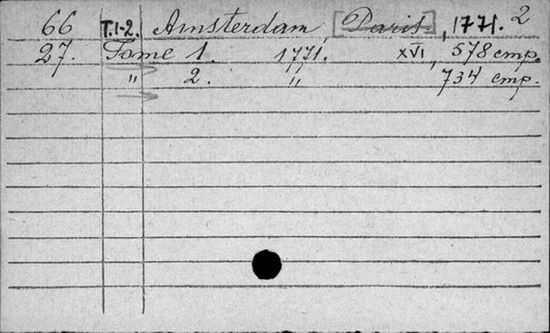 66 T.1-2. Amsterdam [Paris], 1771. 2
27. Tome 1. 1771. XVI, 578 стр.
" 2. " 734 стр.